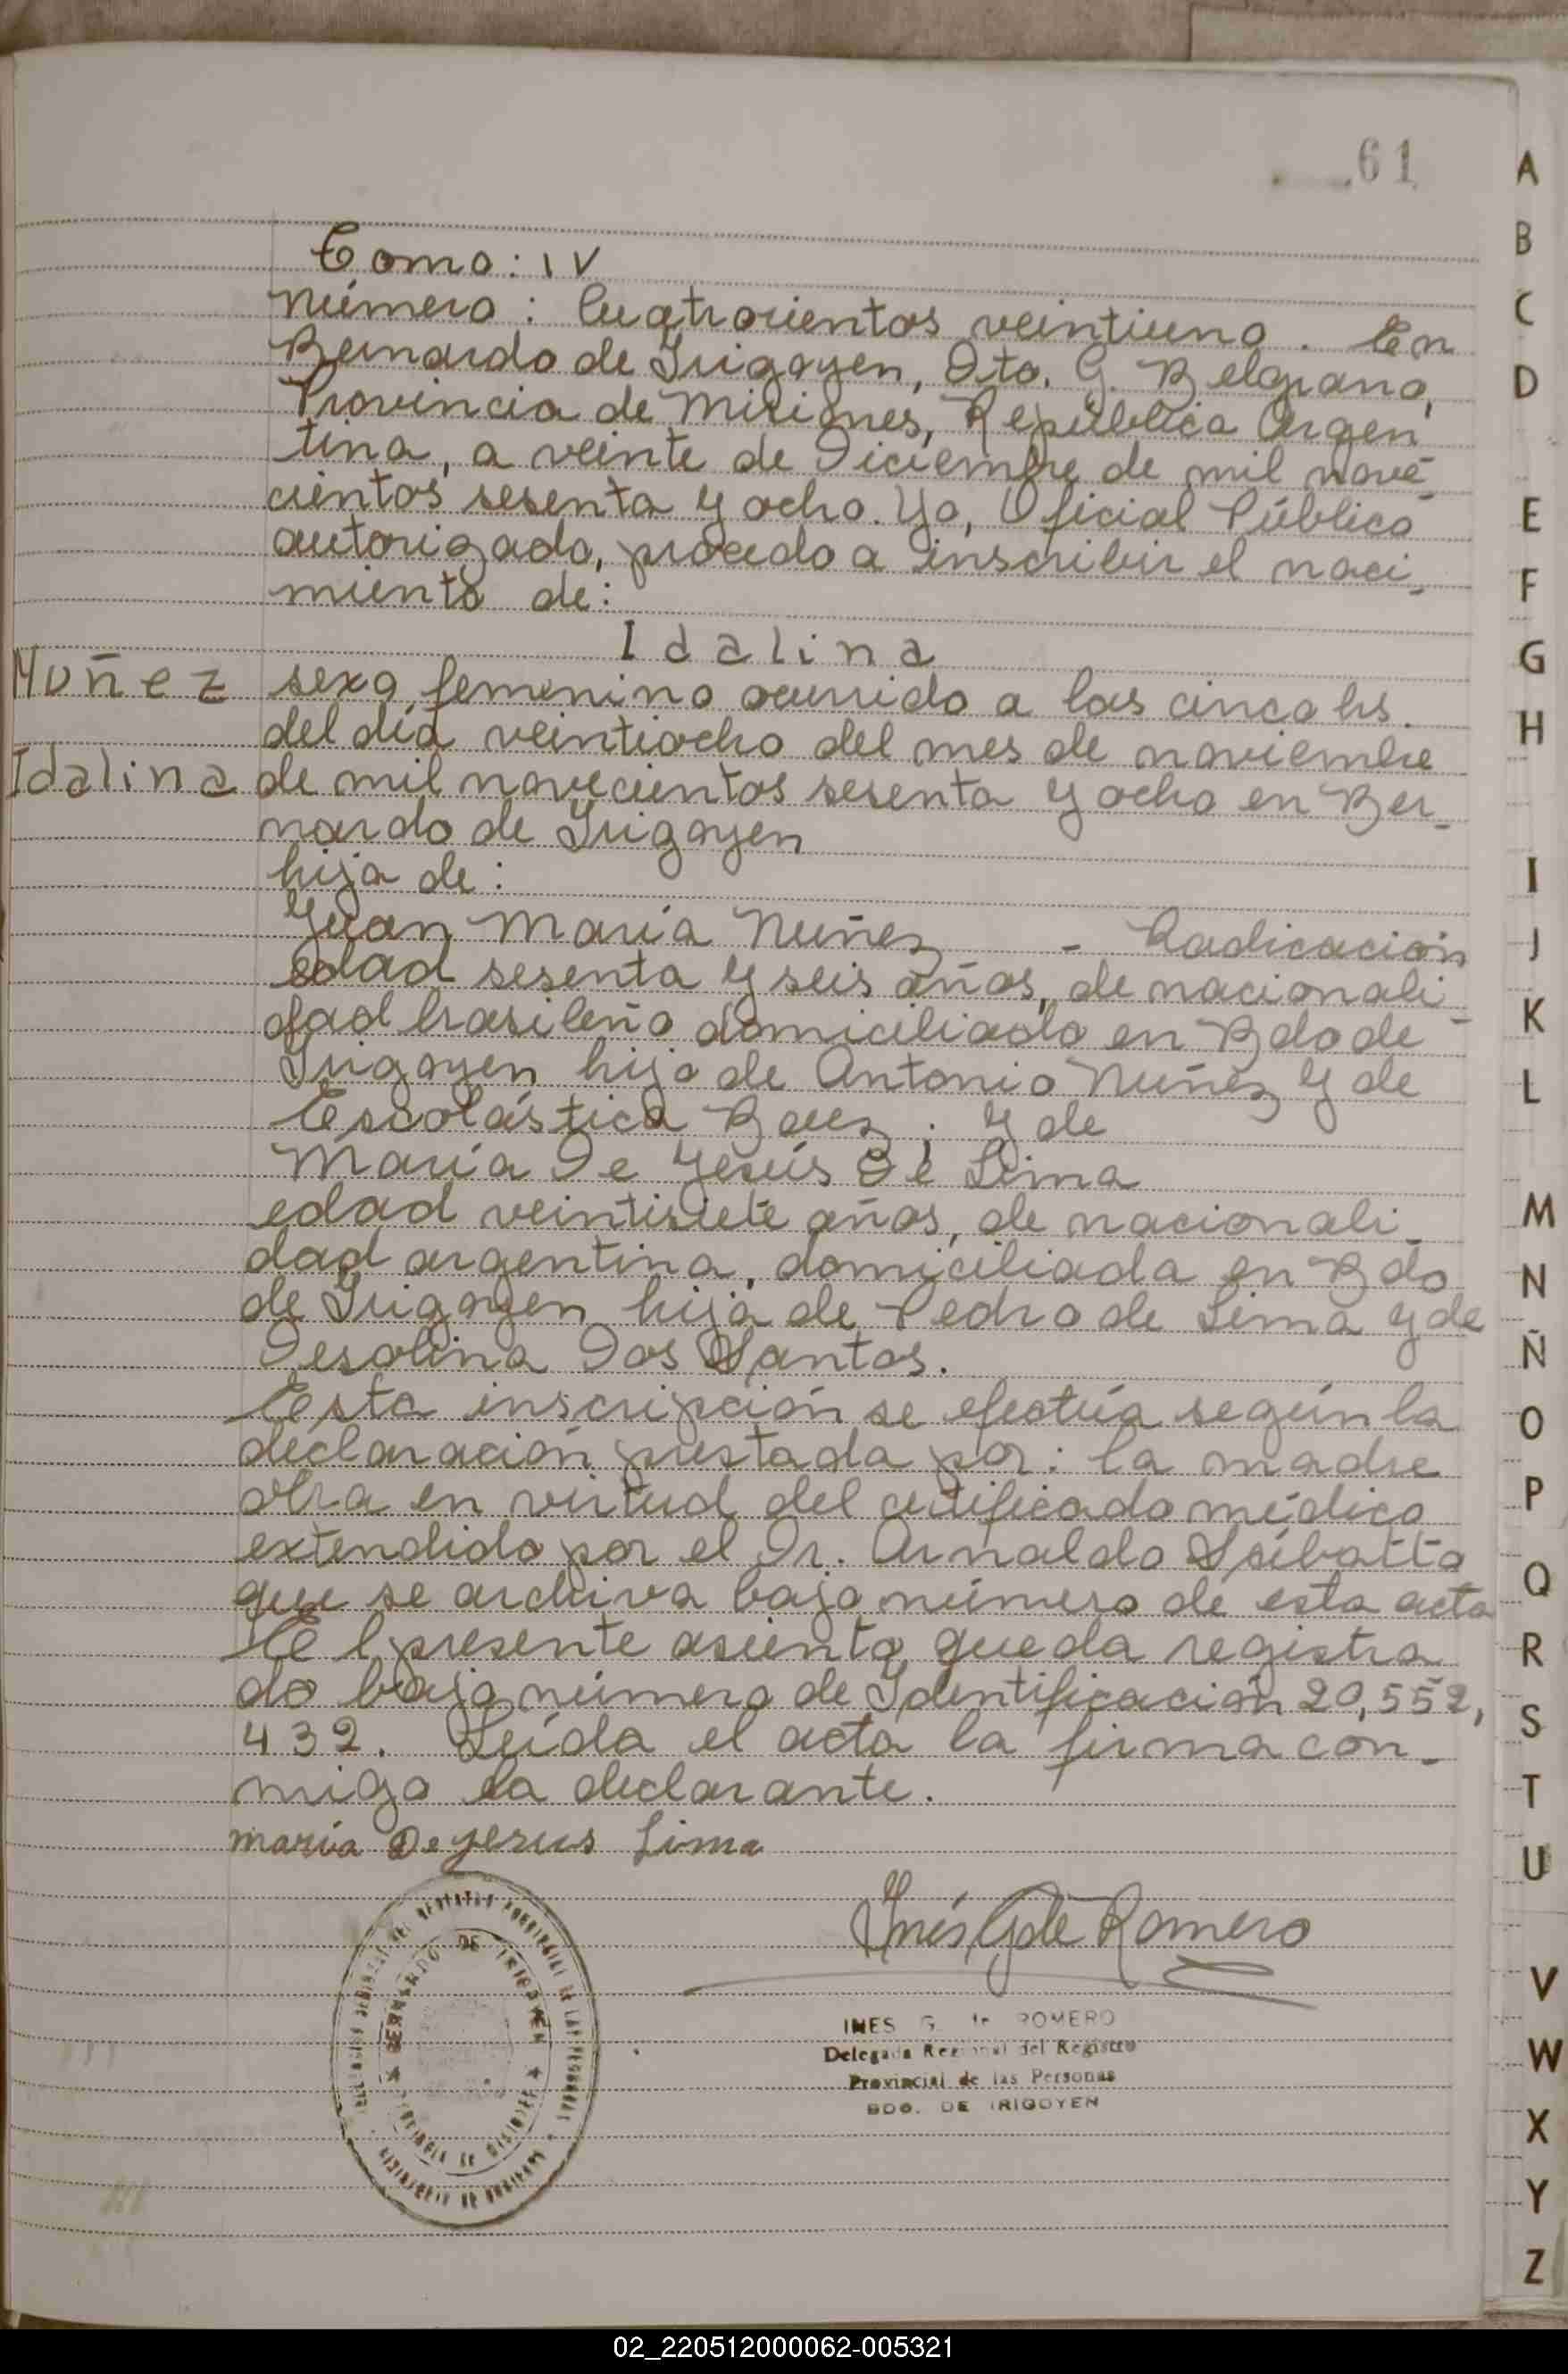 61
Tomo: IV
Número: Cuatrocientos veintiuno. En
Bernardo de Irigoyen, Dto. G. Belgrano,
Provincia de Misiones, República Argen
tina, a veinte de Diciembre de mil nove-
cientos sesenta y ocho. Yo, Oficial Público
autorizado, procedo a inscribir el naci-
miento de:
Idalina
Nuñez sexo femenino ocurrido a las cinco hs.
del día veintiocho del mes de noviembre
Idalina de mil novecientos sesenta y ocho en Ber-
nardo de Irigoyen
hija de:
Juan María Nuñez - Radicación
edad sesenta y seis años, de nacionali-
dad brasileño domiciliado en Bdo de
Irigoyen hijo de Antonio Nuñez y de
Escolástica Baez; y de
María De Jesús De Lima
edad veintisiete años, de nacionali-
dad argentina, domiciliada en Bdo
de Irigoyen hija de Pedro de Lima y de
Desolina Dos Santos.
Esta inscripción se efectúa según la
declaración prestada por: la madre
obra en virtud del certificado médico
extendido por el Dr. Arnaldo
que se archiva bajo número de esta acta
El presente asiento queda registra
do bajo número de Identificación 20,552,
432. Leída el acta la firma con-
migo la declarante.
maría De jesus Lima
Inés G de Romero
INES G. de ROMERO
Delegada Regional del Registro
Provincial de las Personas
BDO. DE IRIGOYEN
BERNARDO DE IRIGOYEN
PROVINCIA DE MISIONES
A
B
C
D
E
F
G
H
I
J
K
L
M
N
Ñ
O
P
Q
R
S
T
U
V
W
X
Y
Z
02_220512000062-005321